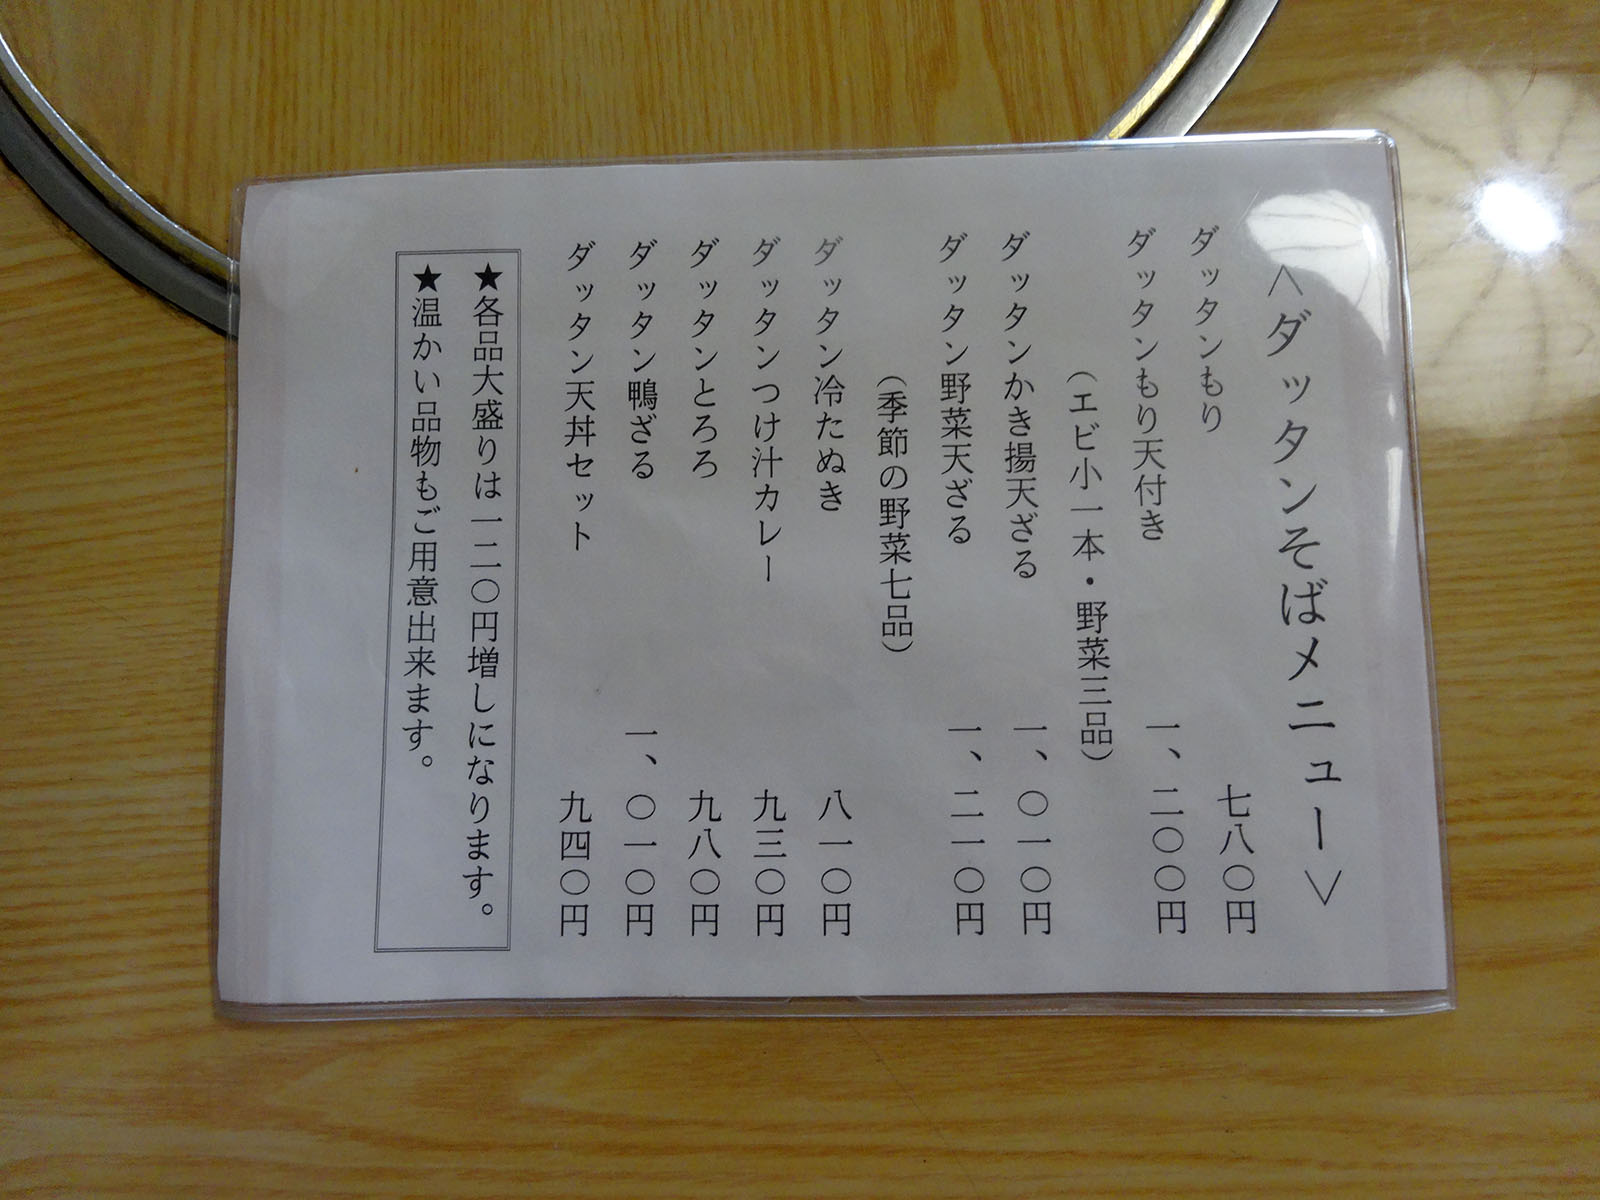 ＜ダッタンそばメニュー＞
ダッタンもり 七八〇円
ダッタンもり天付き 一、二〇〇円
（エビ小一本・野菜三品）
ダッタンかき揚天ざる 一、〇一〇円
ダッタン野菜天ざる 一、二一〇円
（季節の野菜七品）
ダッタン冷たぬき 八一〇円
ダッタンつけ汁カレー 九三〇円
ダッタンとろろ 九八〇円
ダッタン鴨ざる 一、〇一〇円
ダッタン天丼セット 九四〇円
★各品大盛りは一二〇円増しになります。
★温かい品物もご用意出来ます。